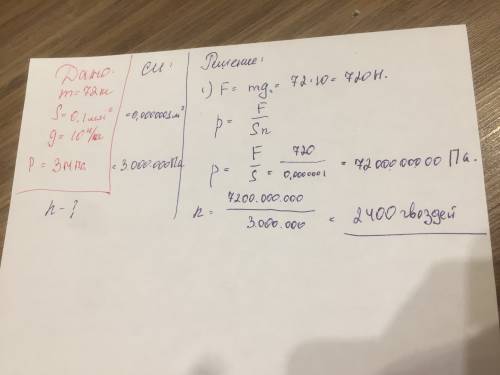 Дано:
m = 72 кг
S = 0,1 мм²
g = 10 н/кг
P = 3 мпа
n - ?
СИ:
= 0,0000001 м²
= 3.000.000 Па
Решение:
1) F = mg = 72·10 = 720 Н.
p = F / Sn
p = F / S = 720 / 0,0000001 = 7200000000 Па.
n = 7200.000.000 / 3.000.000 = 2400 гвоздей